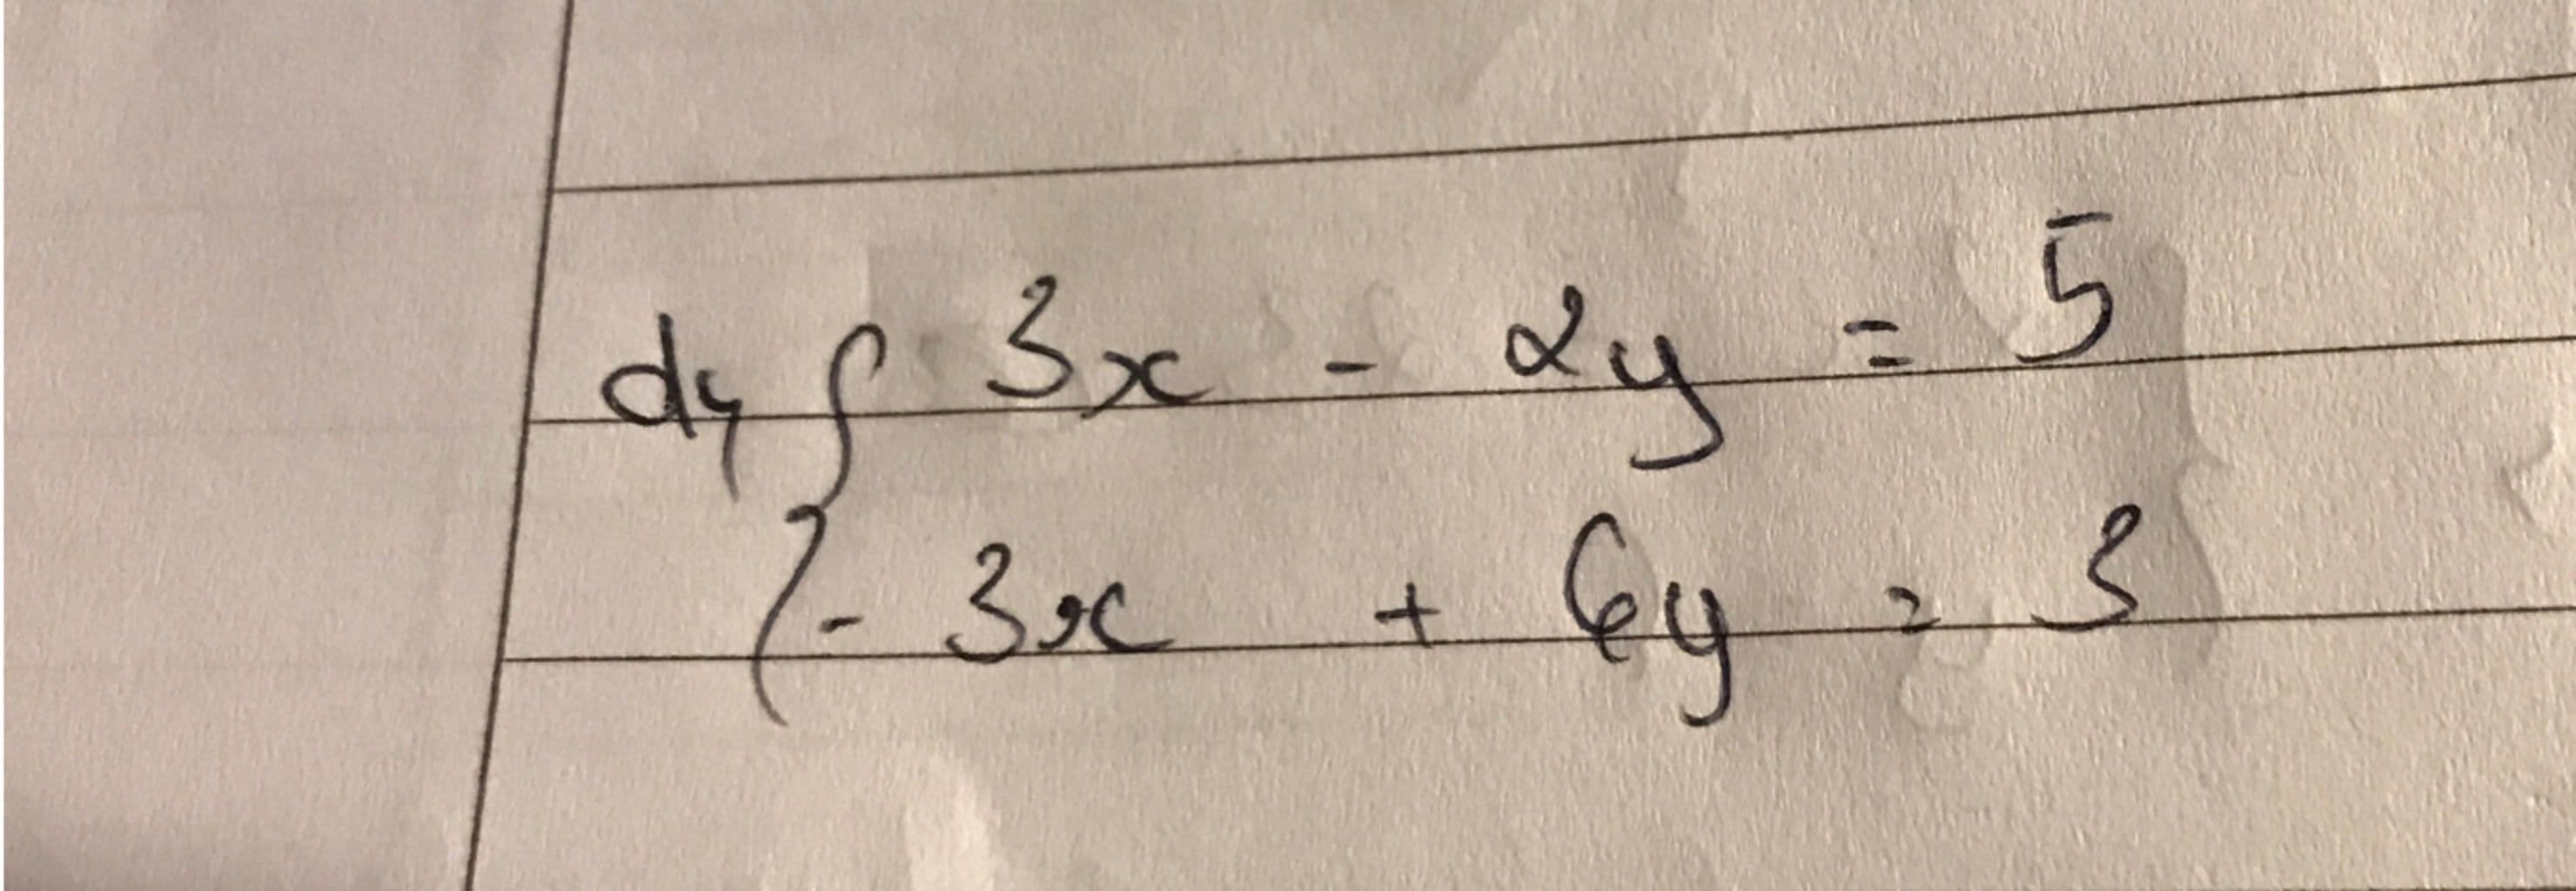 d, { 3x - 2y = 5
- 3x + 6y = 3